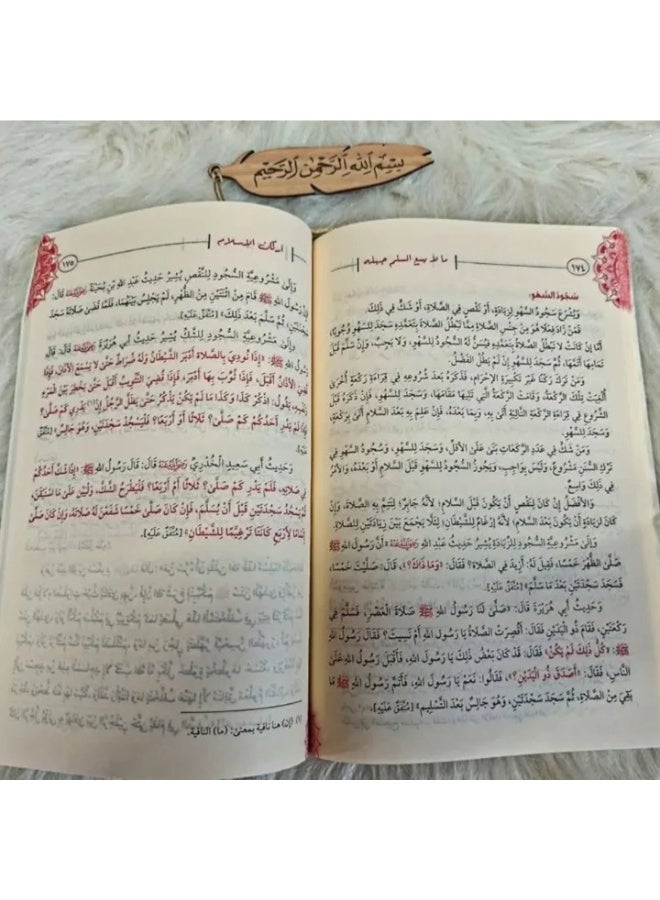 بسم الله الرحمن الرحيم
١٧٤
ما لا يسع المسلم جهله
سُجُودُ السَّهْوِ:
وَيُشْرَعُ سُجُودُ السَّهْوِ لِزِيَادَةٍ، أَوْ نَقْصٍ فِي الصَّلَاةِ، أَوْ شَكٍّ فِي ذَلِكَ.
فَمَنْ زَادَ فِعْلًا هُوَ مِنْ جِنْسِ الصَّلَاةِ مِمَّا تَبْطُلُ الصَّلَاةُ بِتَعَمُّدِهِ سَجَدَ لِلسَّهْوِ وُجُوبًا،
أَمَّا إِنْ كَانَتْ لَا تَبْطُلُ الصَّلَاةُ بِتَعَمُّدِهِ فَيُسَنُّ لَهُ السُّجُودُ لِلسَّهْوِ، وَلَا يَجِبُ، وَإِنْ سَلَّمَ قَبْلَ
تَمَامِهَا أَتَمَّهَا، ثُمَّ سَجَدَ، إِنْ لَمْ يَطُلِ الْفَصْلُ.
وَمَنْ تَرَكَ رُكْنًا غَيْرَ تَكْبِيرَةِ الْإِحْرَامِ، فَذَكَرَهُ بَعْدَ شُرُوعِهِ فِي قِرَاءَةِ رَكْعَةٍ أُخْرَى
أُلْغِيَتْ تِلْكَ الرَّكْعَةُ، وَقَامَتِ الرَّكْعَةُ الَّتِي تَلِيهَا مَقَامَهَا، وَسَجَدَ لِلسَّهْوِ، فَإِنْ ذَكَرَهُ قَبْلَ
الشُّرُوعِ فِي قِرَاءَةِ الرَّكْعَةِ التَّالِيَةِ أَتَى بِهِ، وَبِمَا بَعْدَهُ، فَإِنْ عَلِمَ بَعْدَ السَّلَامِ أَتَى بِرَكْعَةٍ،
وَسَجَدَ لِلسَّهْوِ.
وَمَنْ شَكَّ فِي عَدَدِ الرَّكَعَاتِ بَنَى عَلَى الْأَقَلِّ، وَسَجَدَ لِلسَّهْوِ، وَسُجُودُ السَّهْوِ فِي
تَرْكِ السُّنَنِ مَشْرُوعٌ، وَلَيْسَ بِوَاجِبٍ، وَيَجُوزُ السُّجُودُ لِلسَّهْوِ قَبْلَ السَّلَامِ أَوْ بَعْدَهُ، وَالْأَمْرُ
فِي ذَلِكَ وَاسِعٌ.
وَالْأَفْضَلُ إِنْ كَانَ لِنَقْصٍ أَنْ يَكُونَ قَبْلَ السَّلَامِ؛ لِأَنَّهُ جَابِرٌ؛ لِتَتِمَّ بِهِ الصَّلَاةُ، وَإِنْ
كَانَ لِزِيَادَةٍ أَنْ يَكُونَ بَعْدَ السَّلَامِ؛ لِأَنَّهُ إِرْغَامٌ لِلشَّيْطَانِ؛ لِئَلَّا يَجْمَعَ بَيْنَ زِيَادَتَيْنِ لِلصَّلَاةِ.
وَإِلَى مَشْرُوعِيَّةِ السُّجُودِ لِلزِّيَادَةِ يُشِيرُ حَدِيثُ عَبْدِ اللهِ رَضِيَ اللَّهُ عَنْهُ «أَنَّ رَسُولَ اللهِ ﷺ
صَلَّى الظُّهْرَ خَمْسًا، فَقِيلَ لَهُ: أَزِيدَ فِي الصَّلَاةِ؟ فَقَالَ: «وَمَا ذَاكَ؟»، قَالَ: صَلَّيْتَ خَمْسًا،
فَسَجَدَ سَجْدَتَيْنِ بَعْدَ مَا سَلَّمَ» [مُتَّفَقٌ عَلَيْهِ].
وَحَدِيثُ أَبِي هُرَيْرَةَ قَالَ: «صَلَّى لَنَا رَسُولُ اللهِ ﷺ صَلَاةَ الْعَصْرِ، فَسَلَّمَ فِي
رَكْعَتَيْنِ، فَقَامَ ذُو الْيَدَيْنِ فَقَالَ: أَقُصِرَتِ الصَّلَاةُ يَا رَسُولَ اللهِ أَمْ نَسِيتَ؟ فَقَالَ رَسُولُ اللهِ
ﷺ: «كُلُّ ذَلِكَ لَمْ يَكُنْ» فَقَالَ: قَدْ كَانَ بَعْضُ ذَلِكَ يَا رَسُولَ اللهِ، فَأَقْبَلَ رَسُولُ اللهِ ﷺ عَلَى
النَّاسِ، فَقَالَ: «أَصَدَقَ ذُو الْيَدَيْنِ؟»، فَقَالُوا: نَعَمْ يَا رَسُولَ اللهِ، فَأَتَمَّ رَسُولُ اللهِ ﷺ مَا
بَقِيَ مِنَ الصَّلَاةِ، ثُمَّ سَجَدَ سَجْدَتَيْنِ، وَهُوَ جَالِسٌ بَعْدَ التَّسْلِيمِ» [مُتَّفَقٌ عَلَيْهِ].
أركان الإسلام
١٧٥
وَإِلَى مَشْرُوعِيَّةِ السُّجُودِ لِلنَّقْصِ يُشِيرُ حَدِيثُ عَبْدِ اللهِ بْنِ بُحَيْنَةَ رَضِيَ اللَّهُ عَنْهُ قَالَ:
إِنَّ رَسُولَ اللهِ ﷺ قَامَ مِنَ اثْنَتَيْنِ مِنَ الظُّهْرِ، لَمْ يَجْلِسْ بَيْنَهُمَا، فَلَمَّا قَضَى صَلَاتَهُ سَجَدَ
سَجْدَتَيْنِ، ثُمَّ سَلَّمَ بَعْدَ ذَلِكَ» [مُتَّفَقٌ عَلَيْهِ].
وَإِلَى مَشْرُوعِيَّةِ السُّجُودِ لِلشَّكِّ يُشِيرُ حَدِيثُ أَبِي هُرَيْرَةَ رَضِيَ اللَّهُ عَنْهُ قَالَ:
رَسُولُ اللهِ ﷺ: «إِذَا نُودِيَ بِالصَّلَاةِ أَدْبَرَ الشَّيْطَانُ وَلَهُ ضُرَاطٌ حَتَّى لَا يَسْمَعَ الْأَذَانَ، فَإِذَا
قُضِيَ الْأَذَانُ أَقْبَلَ، فَإِذَا ثُوِّبَ بِهَا أَدْبَرَ، فَإِذَا قُضِيَ التَّثْوِيبُ أَقْبَلَ حَتَّى يَخْطِرَ بَيْنَ الْمَرْءِ
وَنَفْسِهِ، يَقُولُ: اذْكُرْ كَذَا وَكَذَا مَا لَمْ يَكُنْ يَذْكُرُ حَتَّى يَظَلَّ الرَّجُلُ إِنْ(١) يَدْرِي كَمْ صَلَّى؟
فَإِذَا لَمْ يَدْرِ أَحَدُكُمْ كَمْ صَلَّى؟ ثَلَاثًا أَوْ أَرْبَعًا؟ فَلْيَسْجُدْ سَجْدَتَيْنِ، وَهُوَ جَالِسٌ» [مُتَّفَقٌ
وَحَدِيثُ أَبِي سَعِيدٍ الْخُدْرِيِّ رَضِيَ اللَّهُ عَنْهُ قَالَ: قَالَ رَسُولُ اللهِ ﷺ: «إِذَا شَكَّ أَحَدُكُمْ
فِي صَلَاتِهِ، فَلَمْ يَدْرِ كَمْ صَلَّى؟ ثَلَاثًا أَمْ أَرْبَعًا؟ فَلْيَطْرَحِ الشَّكَّ، وَلْيَبْنِ عَلَى مَا اسْتَيْقَنَ،
ثُمَّ يَسْجُدُ سَجْدَتَيْنِ قَبْلَ أَنْ يُسَلِّمَ، فَإِنْ كَانَ صَلَّى خَمْسًا شَفَعْنَ لَهُ صَلَاتَهُ، وَإِنْ كَانَ صَلَّى
إِتْمَامًا لِأَرْبَعٍ كَانَتَا تَرْغِيمًا لِلشَّيْطَانِ» [مُتَّفَقٌ عَلَيْهِ].
(١) (إن) هنا نافية بمعنى: (ما) النافية.